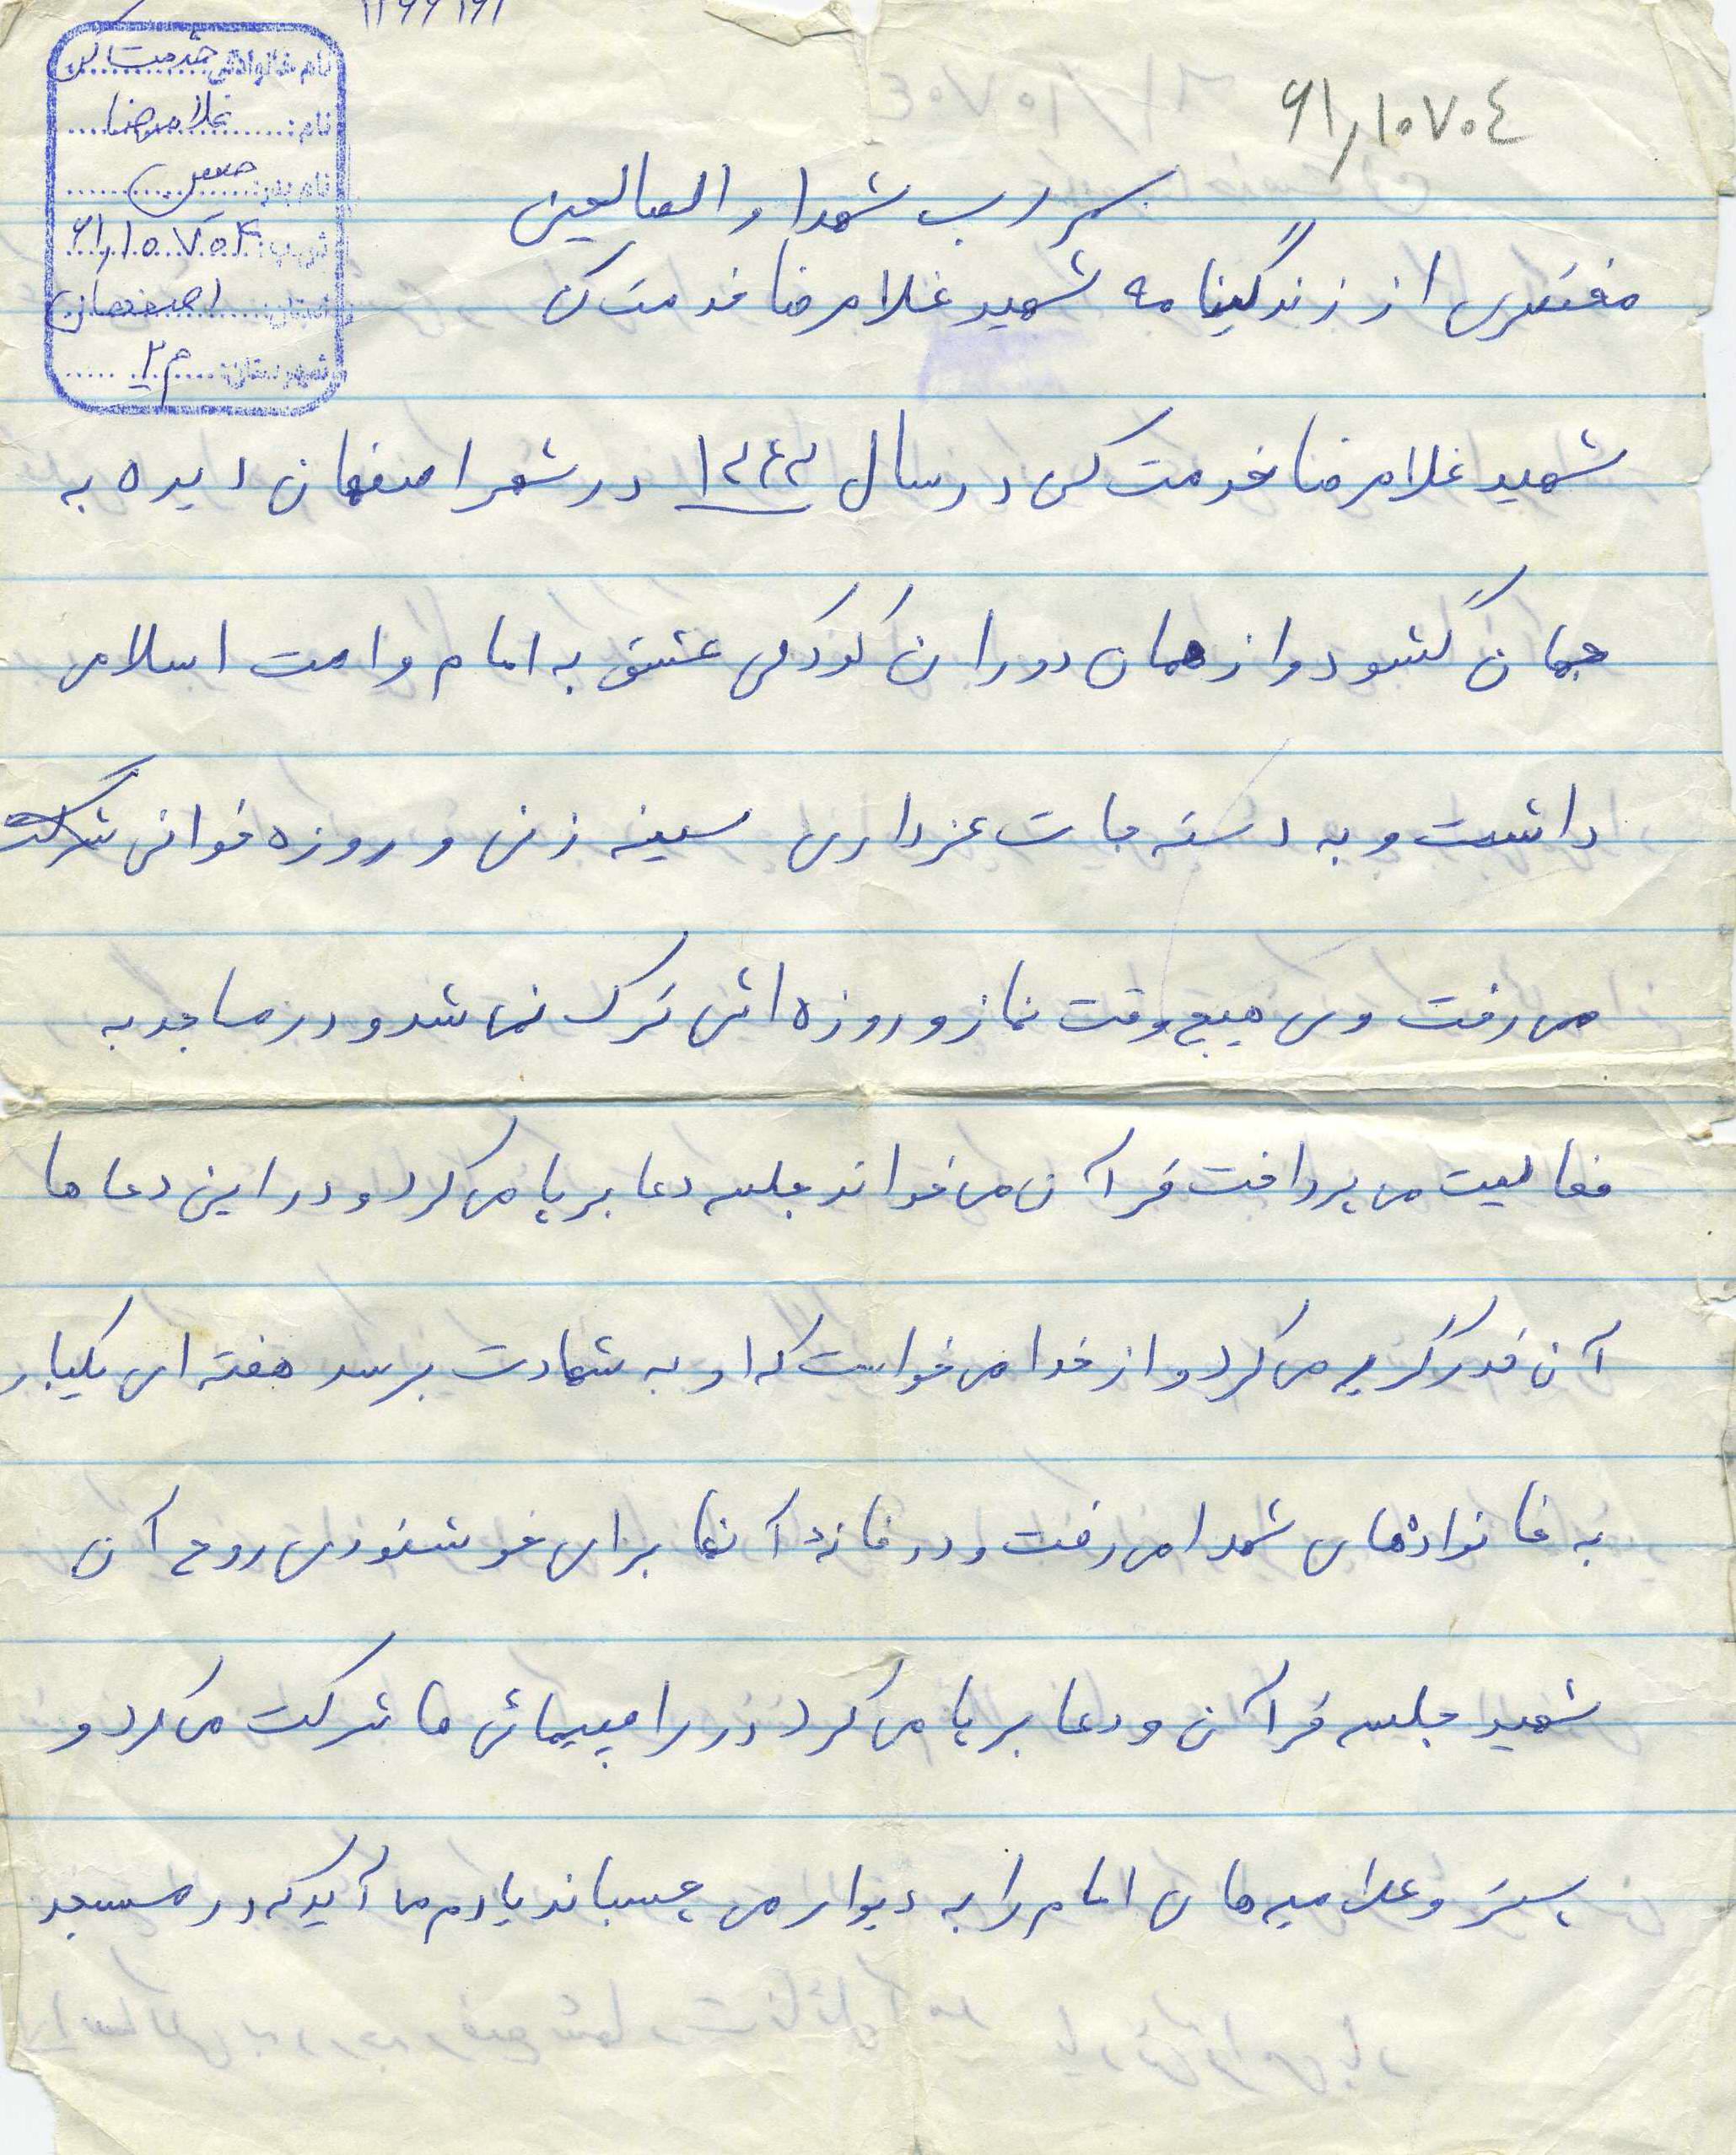 ۱۲۶۶۱۶۱
نام خانوادگی: خدمت کن
نام: غلامرضا
نام پدر: حسن
۶۱٫۱۰۷۰۴
استان: اصفهان
شهرستان: م۲
۶۱٫۱۰۷۰٤
رب شهدا و الصالحین
مختصری از زندگینامه شهید غلامرضا خدمت کن
شهید غلامرضا خدمت کن در سال ۱۳۴۳ در شهر اصفهان دیده به
جهان گشود و از همان دوران کودکی عشق به امام و امت اسلامی
داشت و به دسته جات عزاداری سینه زنی و روزه خوانی شرکت
می رفت وی هیچ وقت نماز و روزه اش ترک نمی شد و در مساجد به
فعالیت می پرداخت قرآن می خواند جلسه دعا بر پا می کرد و در این دعا ها
آن قدر گریه می کرد و از خدا می خواست که او به شهادت برسد هفته ای یکبار
به خانوادهای شهدا می رفت و در خانه آنها برای خوشنودی روح آن
شهید جلسه قرآن و دعا بر پا می کرد در راهپیمائی ها شرکت می کرد و
پستر و علامیه های امام را به دیوار می چسباند یادم ما آید که در مسجد